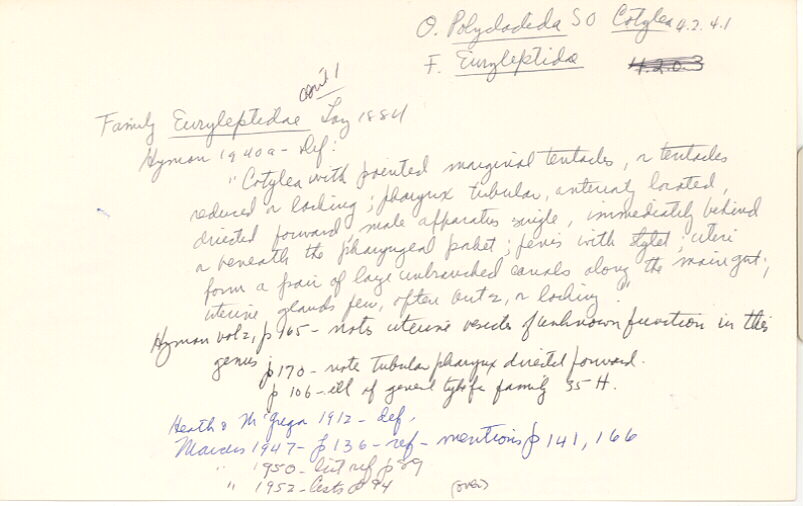 O. Polycladida SO Cotylea 4.2.4.1
F. Euryleptidae 4.2.0.3
Family Euryleptidae Lang 1884
Hyman 1940a - def:
"Cotylea with pointed marginal tentacles, or tentacles
reduced or lacking; pharynx tubular, anteriorly located,
directed forward, male apparatus single, immediately behind
or beneath the pharyngeal pocket; penis with stylet; uteri
form a pair of large unbranched canals along the main gut;
uterine glands few, often but 2, or lacking."
Hyman vol 2, p 165 - notes uterine vesicles of unknown function in this
genus
p 170 - note tubular pharynx directed forward.
p 106 - ill of general type for family 35 H.
Heath & McGregor 1912 - def.
Marcus 1947 - p 136 - ref - mentions p 141, 166
" 1950 - list ref p 89
" 1952 - lists p 94 (over)